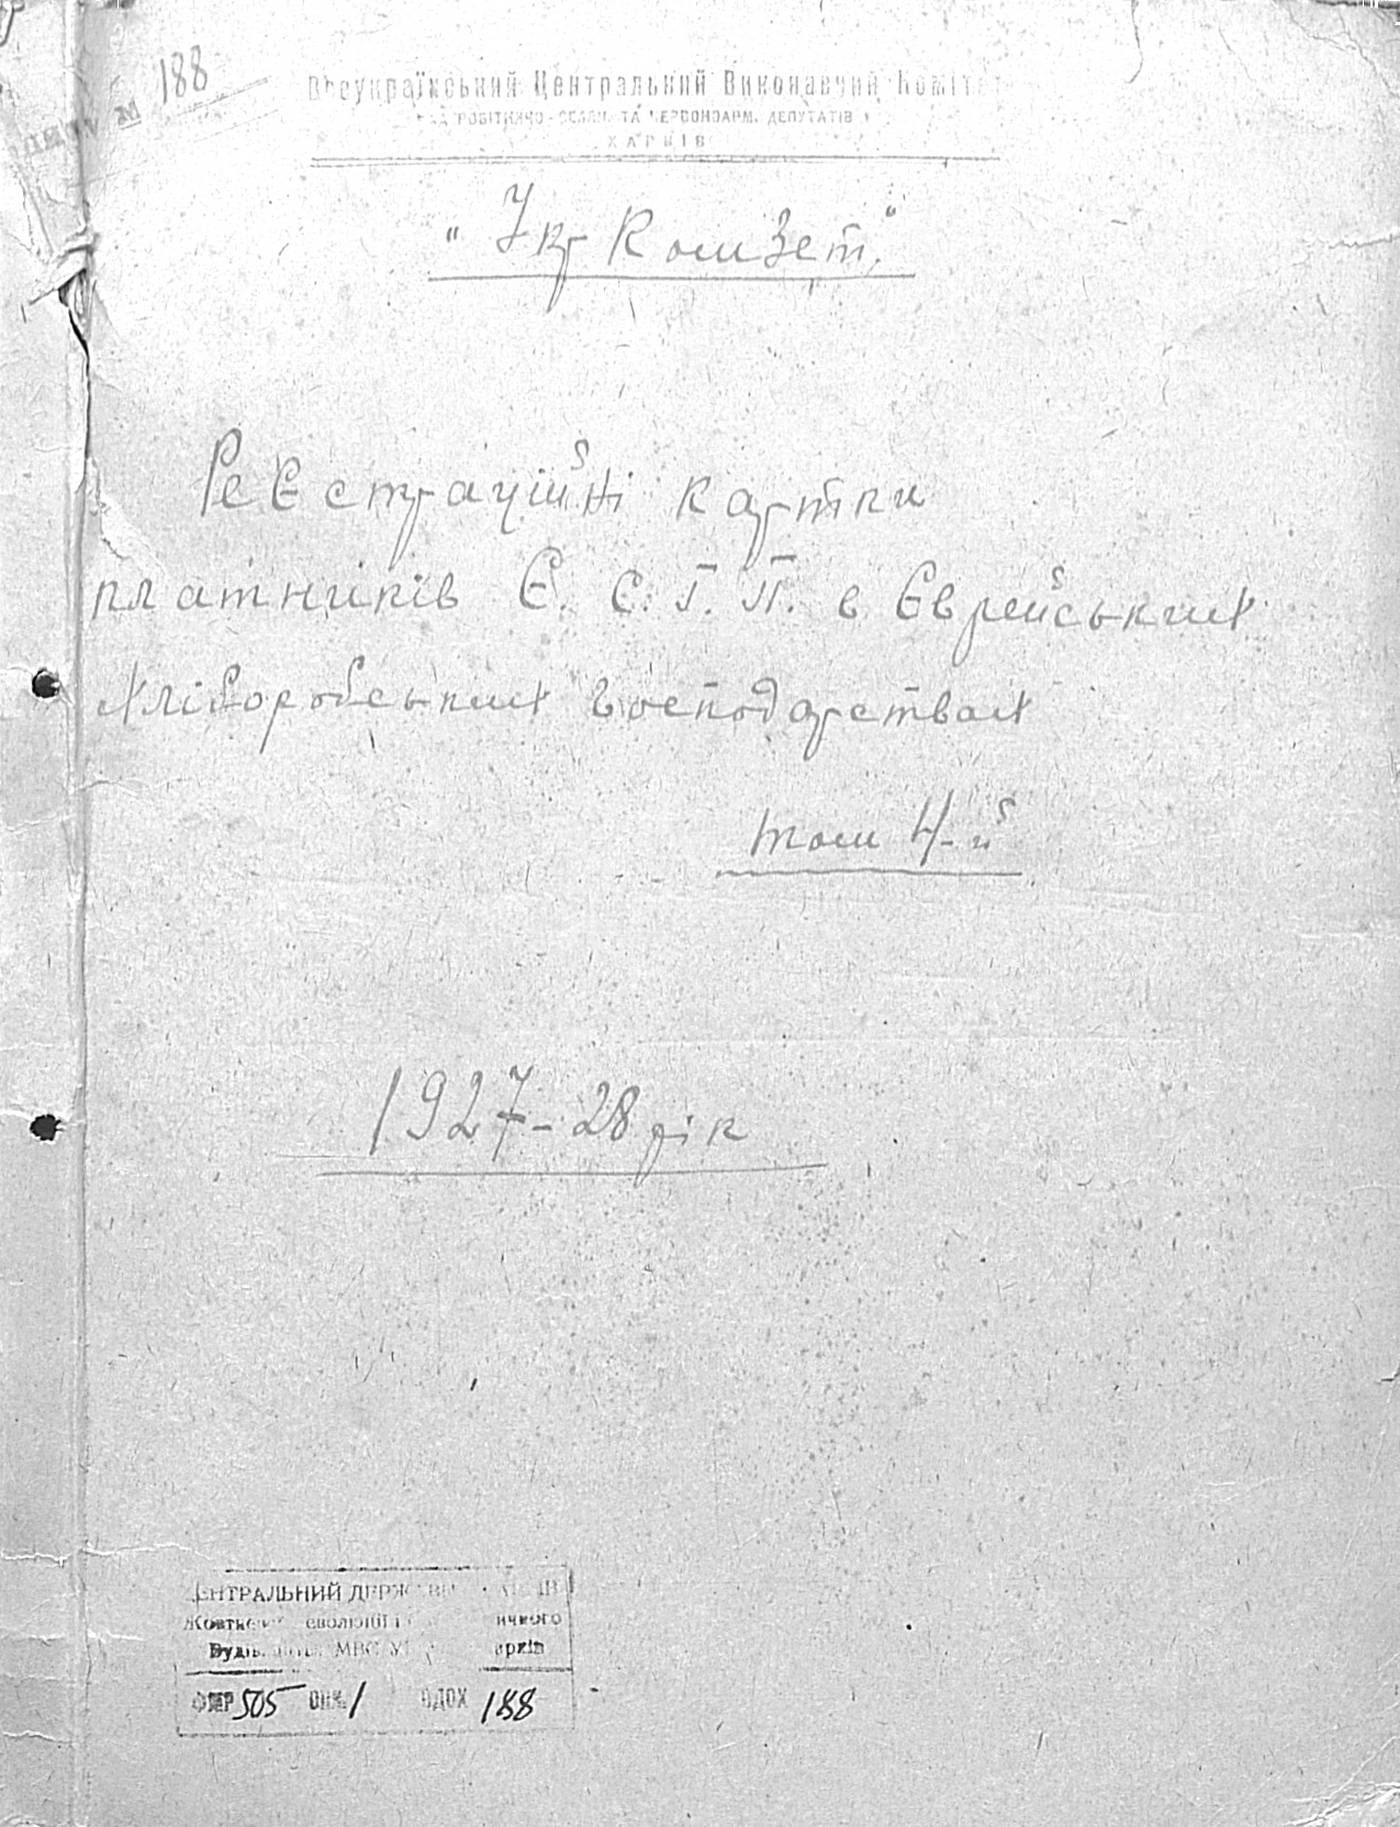 188
Всеукраїнський Центральний Виконавчий Комітет
РОБІТНИЧО-СЕЛЯН. ТА ЧЕРВОНОАРМ. ДЕПУТАТІВ
ХАРКІВ
"УкрКомЗет."
РеЄстраційні картки
платників Є. С. Г. П. в Єврейських
хліборобських господарствах
том 4-й
1927-28 рік
ЦЕНТРАЛЬНИЙ ДЕРЖАВНИЙ АРХІВ
МВС
ФОНД 505 ОПИС 1 ОДЗХ 188